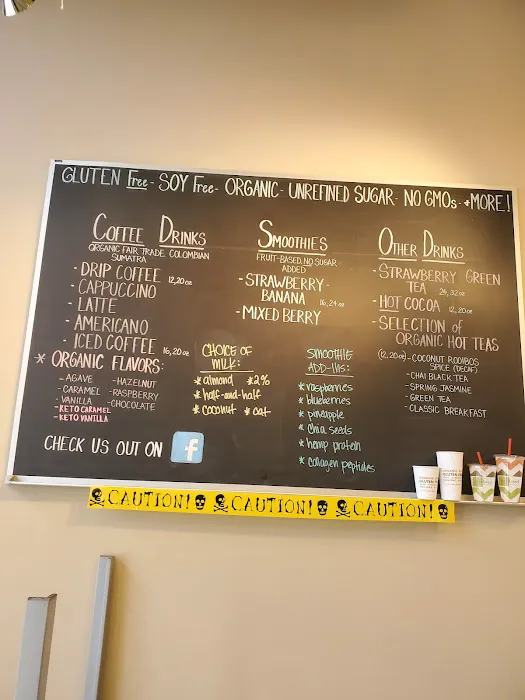 GLUTEN Free - SOY Free - ORGANIC - UNREFINED SUGAR - NO GMOs - + MORE!
COFFEE DRINKS
ORGANIC FAIR TRADE COLOMBIAN
SUMATRA
- DRIP COFFEE 12,20oz
- CAPPUCCINO
- LATTE
- AMERICANO
- ICED COFFEE 16,20oz
* ORGANIC FLAVORS:
- AGAVE
- CARAMEL
- VANILLA
- KETO CARAMEL
- KETO VANILLA
- HAZELNUT
- RASPBERRY
- CHOCOLATE
CHECK US OUT ON f
SMOOTHIES
FRUIT-BASED, NO SUGAR-
ADDED
- STRAWBERRY-
BANANA 16,24oz
- MIXED BERRY
CHOICE OF
MILK:
* almond * 2%
* half-and-half
* coconut * oat
SMOOTHIE
ADD-INS:
* raspberries
* blueberries
* pineapple
* chia seeds
* hemp protein
* collagen peptides
OTHER DRINKS
- STRAWBERRY GREEN
TEA 24,32oz
- HOT COCOA 12,20oz
- SELECTION OF
ORGANIC HOT TEAS
(12,20oz) - COCONUT ROOIBOS
SPICE (DECAF)
- CHAI BLACK TEA
- SPRING JASMINE
- GREEN TEA
- CLASSIC BREAKFAST
CAUTION! CAUTION! CAUTION!